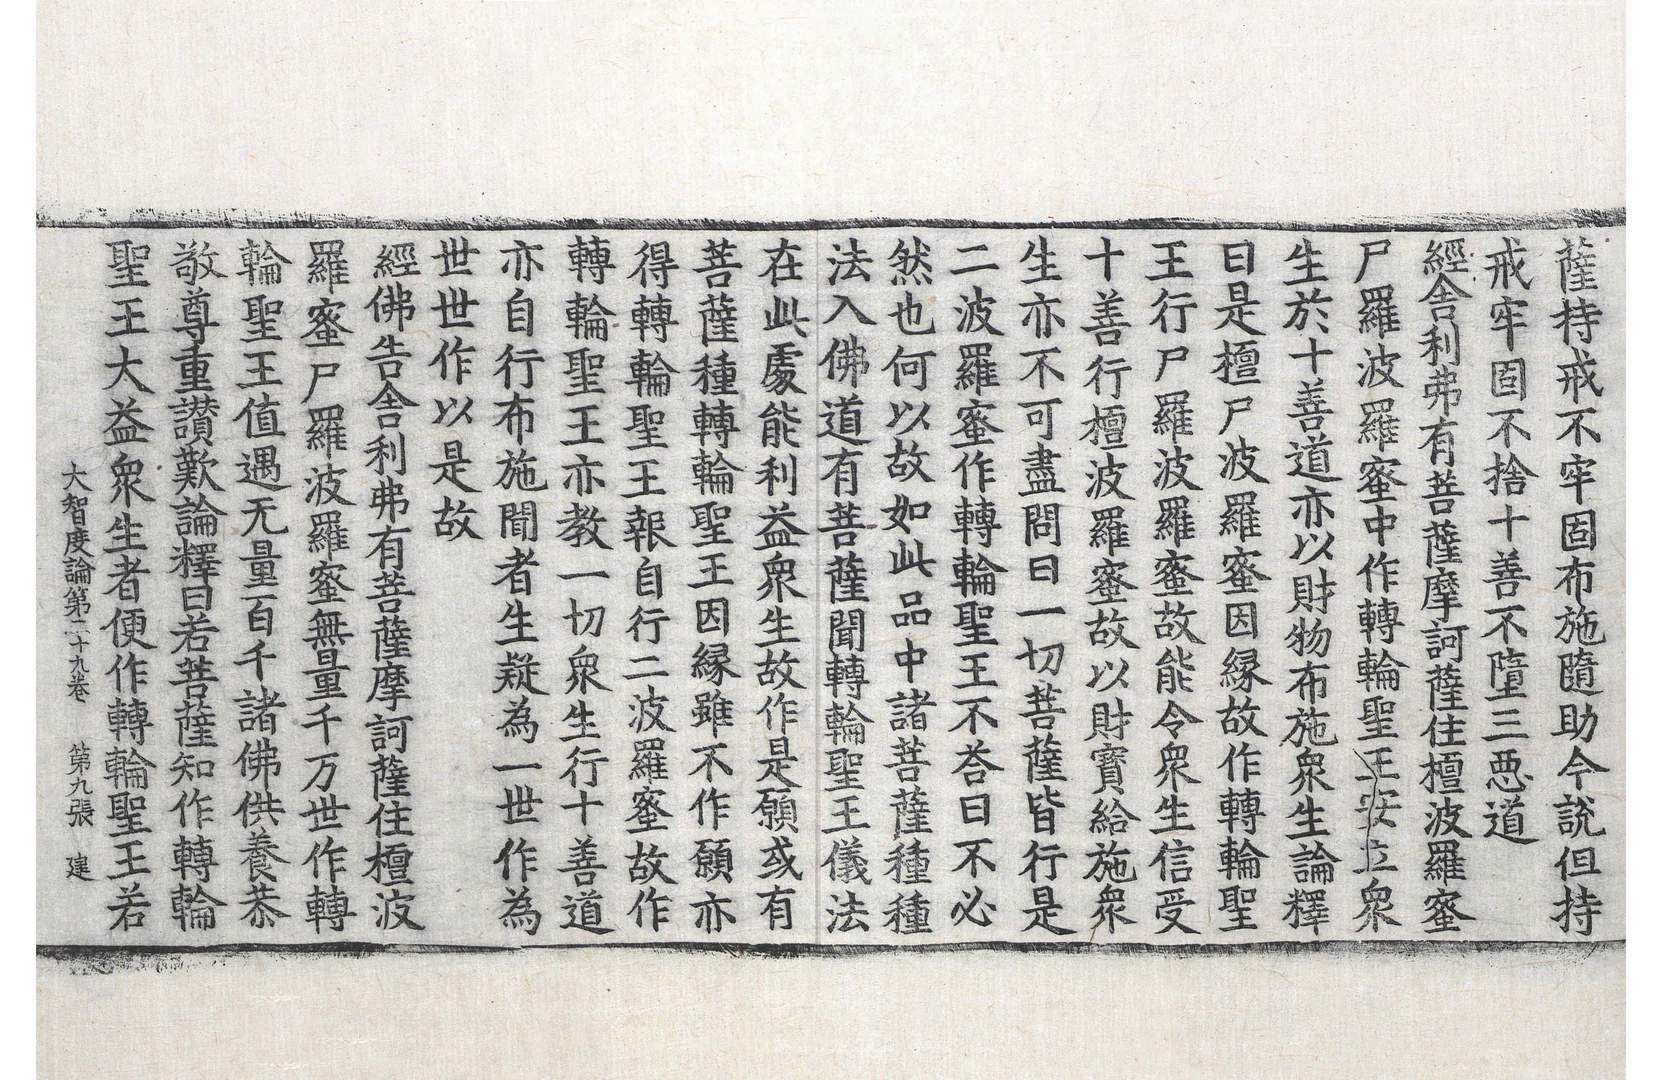 薩持戒不牢固布施隨助今說但持
戒牢固不捨十善不墮三惡道
經舍利弗有菩薩摩訶薩住檀波羅蜜
尸羅波羅蜜中作轉輪聖王安立衆
生於十善道亦以財物布施衆生論釋
曰是檀尸波羅蜜因縁故作轉輪聖
王行尸羅波羅蜜故能令衆生信受
十善行檀波羅蜜故以財寶給施衆
生亦不可盡問曰一切菩薩皆行是
二波羅蜜作轉輪聖王不荅曰不必
然也何以故如此品中諸菩薩種種
法入佛道有菩薩聞轉輪聖王儀法
在此處能利益衆生故作是願或有
菩薩種轉輪聖王因縁雖不作願亦
得轉輪聖王報自行二波羅蜜故作
轉輪聖王亦教一切衆生行十善道
亦自行布施聞者生疑為一世作為
世世作以是故
經佛告舍利弗有菩薩摩訶薩住檀波
羅蜜尸羅波羅蜜無量千万世作轉
輪聖王值遇无量百千諸佛供養恭
敬尊重讃歎論釋曰若菩薩知作轉輪
聖王大益衆生者便作轉輪聖王若
大智度論第二十九卷 第九張 建